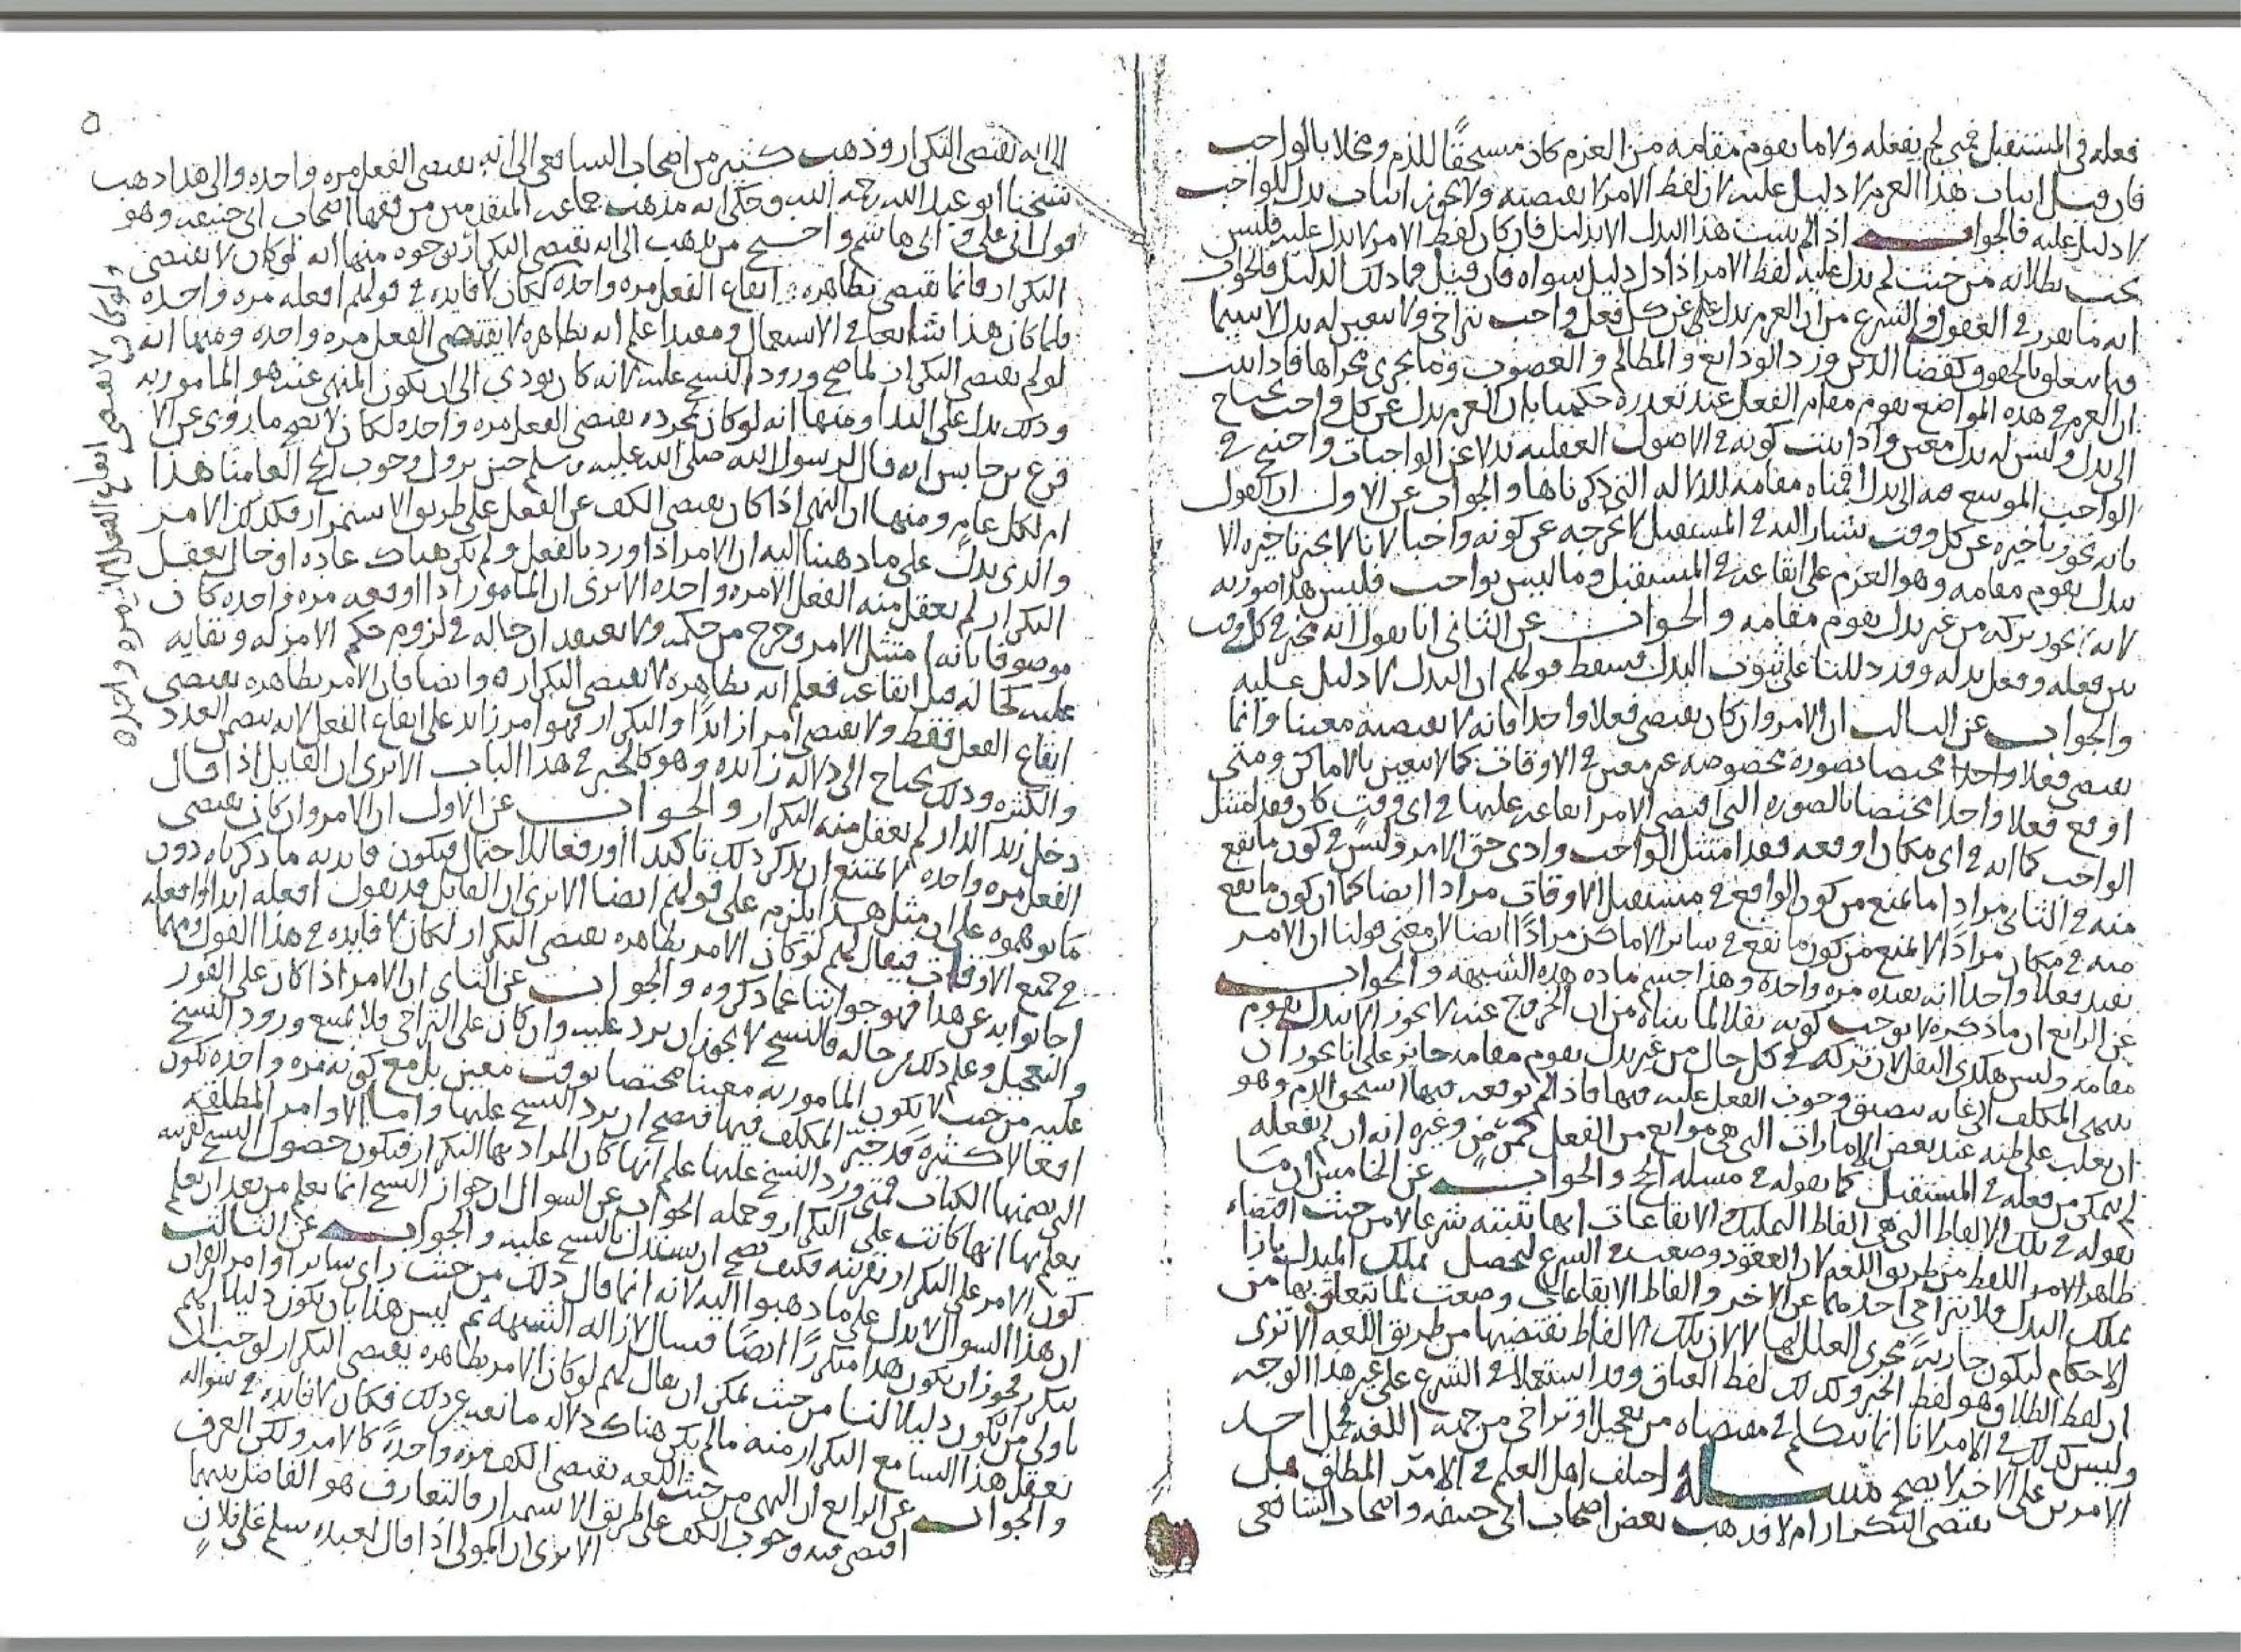 فعله في المستقبل فمتى لم يفعله ولا ما يقوم مقامه من العزم كان مستحقًا للذم ومخلا بالواجب
فان قيل اثبات هذا العزم لا دليل عليه لان لفظ الامر لا يقتضيه ولا يجوز اثبات بدل للواجب
لا دليل عليه فالجواب اذا لم يثبت هذا البدل الا بدليل فان كان لفظ الامر لا يدل عليه فليس
يجب بطلانه من حيث لم يدل عليه لفظ الامر اذا دل دليل سواه فان قيل فما ذلك الدليل فالجواب
انه ما تقرر في العقول والشرع من ان العزم بدل عن كل فعل واجب تراخى ولا يتعين له بدل لا سيما
فيما يتعلق بالحقوق كقضا الدين ورد الودايع والمظالم والغصوب وما يجري مجراها فاذا ثبت
ان العزم في هذه المواضع يقوم مقام الفعل عند تعذره حكمنا بان العزم بدل عن كل واجب يحتاج
الى بدل وليس له بدل معين واذا ثبت كونه في الاصول العقليه بدلا عن الواجبات واحتيج في
الواجب الموسع فيه الى بدل اقمناه مقامه للدلاله التي ذكرناها والجواب عن الاول ان القول
بانه يجوز تاخيره عن كل وقت يشار اليه في المستقبل لا يخرجه عن كونه واجبا لانا لا نجيز تاخيره الا
ببدل يقوم مقامه وهو العزم على ايقاعه في المستقبل وما ليس بواجب فليس هذا صورته
لانه يجوز تركه من غير بدل يقوم مقامه والجواب عن الثاني انا نقول انه مخير في كل وقت
بين فعله وفعل بدله وقد دللنا على ثبوت البدل فسقط قولهم ان البدل لا دليل عليه
والجواب عن الثالث ان الامر وان كان يقتضي فعلا واحدا فانه لا يقتضيه معينا وانما
يقتضي فعلا واحدا مختصا بصورة مخصوصه غير معين في الاوقات كما لا يتعين بالاماكن ومتى
اوقع فعلا واحدا مختصا بالصوره التي اقتضى الامر ايقاعه عليها في اي وقت كان فقد امتثل
الواجب كما انه في اي مكان اوقعه فقد امتثل الواجب وادى حق الامر وليس في كون ما يقع
منه في الثاني مرادا ما يمنع من كون الواقع في مستقبل الاوقات مرادا ايضا كما ان كون ما يقع
منه في مكان مرادًا لا يمنع من كون ما يقع في ساير الاماكن مرادًا ايضا لان معنى قولنا ان الامر
يفيد فعلا واحدا انه يفيده مره واحده وهذا حسم ماده هذه الشبهه والجواب
عن الرابع ان ما ذكره لا يوجب كونه نفلا لما بيناه من ان الخروج عنه لا يجوز الا ببدل يقوم
مقامه وليس هكذى النفل لان تركه في كل حال من غير بدل يقوم مقامه جايز على انا نجوز ان
ينتهي المكلف الى غايه يتضيق وجوب الفعل عليه فيها فاذا لم يوقعه فيها استحق الذم وهو
ان يغلب على ظنه عند بعض الامارات التي هي موانع من الفعل كمرض وغيره انه ان لم يفعله
لم يتمكن من فعله في المستقبل كما نقوله في مسله الحج والجواب عن الخامس ان ما
نقوله في تلك الالفاظ التي هي الفاظ التمليك والايقاعات انها تثبته شرعا لا من حيث اقتضاء
ظاهر الامر اللفظ من طريق اللغه لان العقود وضعت في الشرع ليحصل تملك المبدل بازا
تملك البدل فلا يتراخى احدهما عن الاخر والفاظ الايقاعات وضعت لما يتعلق بها من
الاحكام ليكون جاريةً مجرى العلل لها لا لان تلك الالفاظ تقتضيها من طريق اللغه الا ترى
ان لفظ الطلاق هو لفظ الخبر وكذلك لفظ العتاق وقد استعملا في الشرع على غير هذا الوجه
وليس كذلك في الامر لانا انما نتكلم في مقتضاه من تعجيل او تراخي من جهه اللغه فحمل احد
الامرين على الاخر لا يصح مسالة اختلف اهل العلم في الامر المطلق هل
يقتضي التكرار ام لا فذهب بعض اصحاب ابي حنيفه واصحاب الشافعي
٥
الى انه يقتضي التكرار وذهب كثير من اصحاب الشافعي الى انه يقتضي الفعل مره واحده والى هذا ذهب
شيخنا ابو عبد الله رحمه الله وحكى انه مذهب جماعه المتقدمين من فقها اصحاب ابي حنيفه وهو
قول ابي علي وابي هاشم واحتج من يذهب الى انه يقتضي التكرار بوجوه منها انه لو كان لا يقتضي
التكرار وانما يقتضي بظاهره ايقاع الفعل مره واحدة لكان لا فايده في قولهم افعله مره واحده
فلما كان هذا شايعا في الاستعمال ومفيدا علم انه بظاهره لا يقتضي الفعل مره واحده ومنها انه
لو لم يقتض التكرار لما صح ورود النسخ عليه لانه كان يودي الى ان يكون المنهي عنه هو المامور به
وذلك يدل على البدا ومنها انه لو كان بمجرده يقتضي الفعل مره واحده لكان لا يصح ما روي عن الا
قرع بن حابس انه قال لرسول الله صلى الله عليه وسلم حين نزول وجوب الحج العامنا هذا
ام لكل عام ومنها ان النهي اذا كان يقتضي الكف عن الفعل على طريق الاستمرار فكذلك الامر
والذي يدل على ما ذهبنا اليه ان الامر اذا ورد بالفعل ولم يكن هناك عاده او حال يعقل
التكرار لم يعقل منه الفعل الا مره واحده الا ترى ان المامور اذا اوقعه مره واحده كان
موصوفا بانه امتثل الامر وخرج من حكمه ولا يعتقد ان حاله في لزوم حكم الامر له وبقايه
عليه كحاله قبل ايقاعه فعلم انه بظاهره لا يقتضي التكراره وايضا فان الامر بظاهره يقتضي
ايقاع الفعل فقط ولا يقتضي امرا زايدًا والتكرار فهو امر زايد على ايقاع الفعل لانه يتضمن العدد
والكثره وذلك يحتاج الى دلاله زايده وهو كالخبر في هذا الباب الا ترى ان القايل اذا قال
دخل زيد الدار لم يعقل منه التكرار والجواب عن الاول ان الامر وان كان يقتضي
الفعل مره واحده لا يمتنع ان يذكر ذلك تاكيدا او رفعا للاحتمال فيكون فايدته ما ذكرناه دون
ما توهموه على ان مثل هذا يلزم على قولهم ايضا الا ترى ان القايل قد يقول افعله ابدا وافعله
في جميع الاوقات فيقال لهم لو كان الامر بظاهره يقتضي التكرار لكان لا فايده في هذا القول ومهما
اجابوا به عن هذا فهو جوابنا عما ذكروه والجواب عن الثاني ان الامر اذا كان على الفور
والتعجيل وعلم ذلك من حاله فالنسخ لا يجوز ان يرد عليه وان كان على التراخي فلا يمتنع ورود النسخ
عليه من حيث لا يكون المامور به معينا مختصا بوقت معين بل مع كونه مره واحده يكون
افعالا كثيرةً قد خير المكلف فيها فيصح ان يرد النسخ عليها واما الاوامر المطلقه
التي تضمنها الكتاب فمتى ورد النسخ عليها علم انها كان المراد بها التكرار فيكون حصول النسخ كقرينه
يعلم بها انها كانت على التكرار وجمله الجواب عن السوال ان جواز النسخ انما يعلم من بعد ان يعلم
كون الامر على التكرار بقرينه فكيف يصح ان يستدل بالنسخ عليه والجواب عن الثالث
ان هذا السوال لا يدل على ما ذهبوا اليه لانه انما قال ذلك من حيث راى ساير اوامر القران
يتكرر فجوز ان يكون هذا متكررًا ايضًا فسال لازاله الشبهه ثم ليس هذا بان يكون دليلا لهم
باولى من ان يكون دليلا لنا من حيث يمكن ان يقال لهم لو كان الامر بظاهره يقتضي التكرار لوجب ان
يعقل هذا السامع التكرار منه ما لم يكن هناك دلاله مانعه عن ذلك فكان لا فايده في سواله
والجواب عن الرابع ان النهي من حيث اللغه يقتضي الكف مره واحدةً كالامر ولكن العرف
اقتضى فيه وجوب الكف على طريق الاستمرار والتعارف هو الفاصل بينهما
الا ترى ان المولى اذا قال لعبده سلم على فلانٍ
ولو كان لا يقتضي ايقاع الفعل الا مره واحده